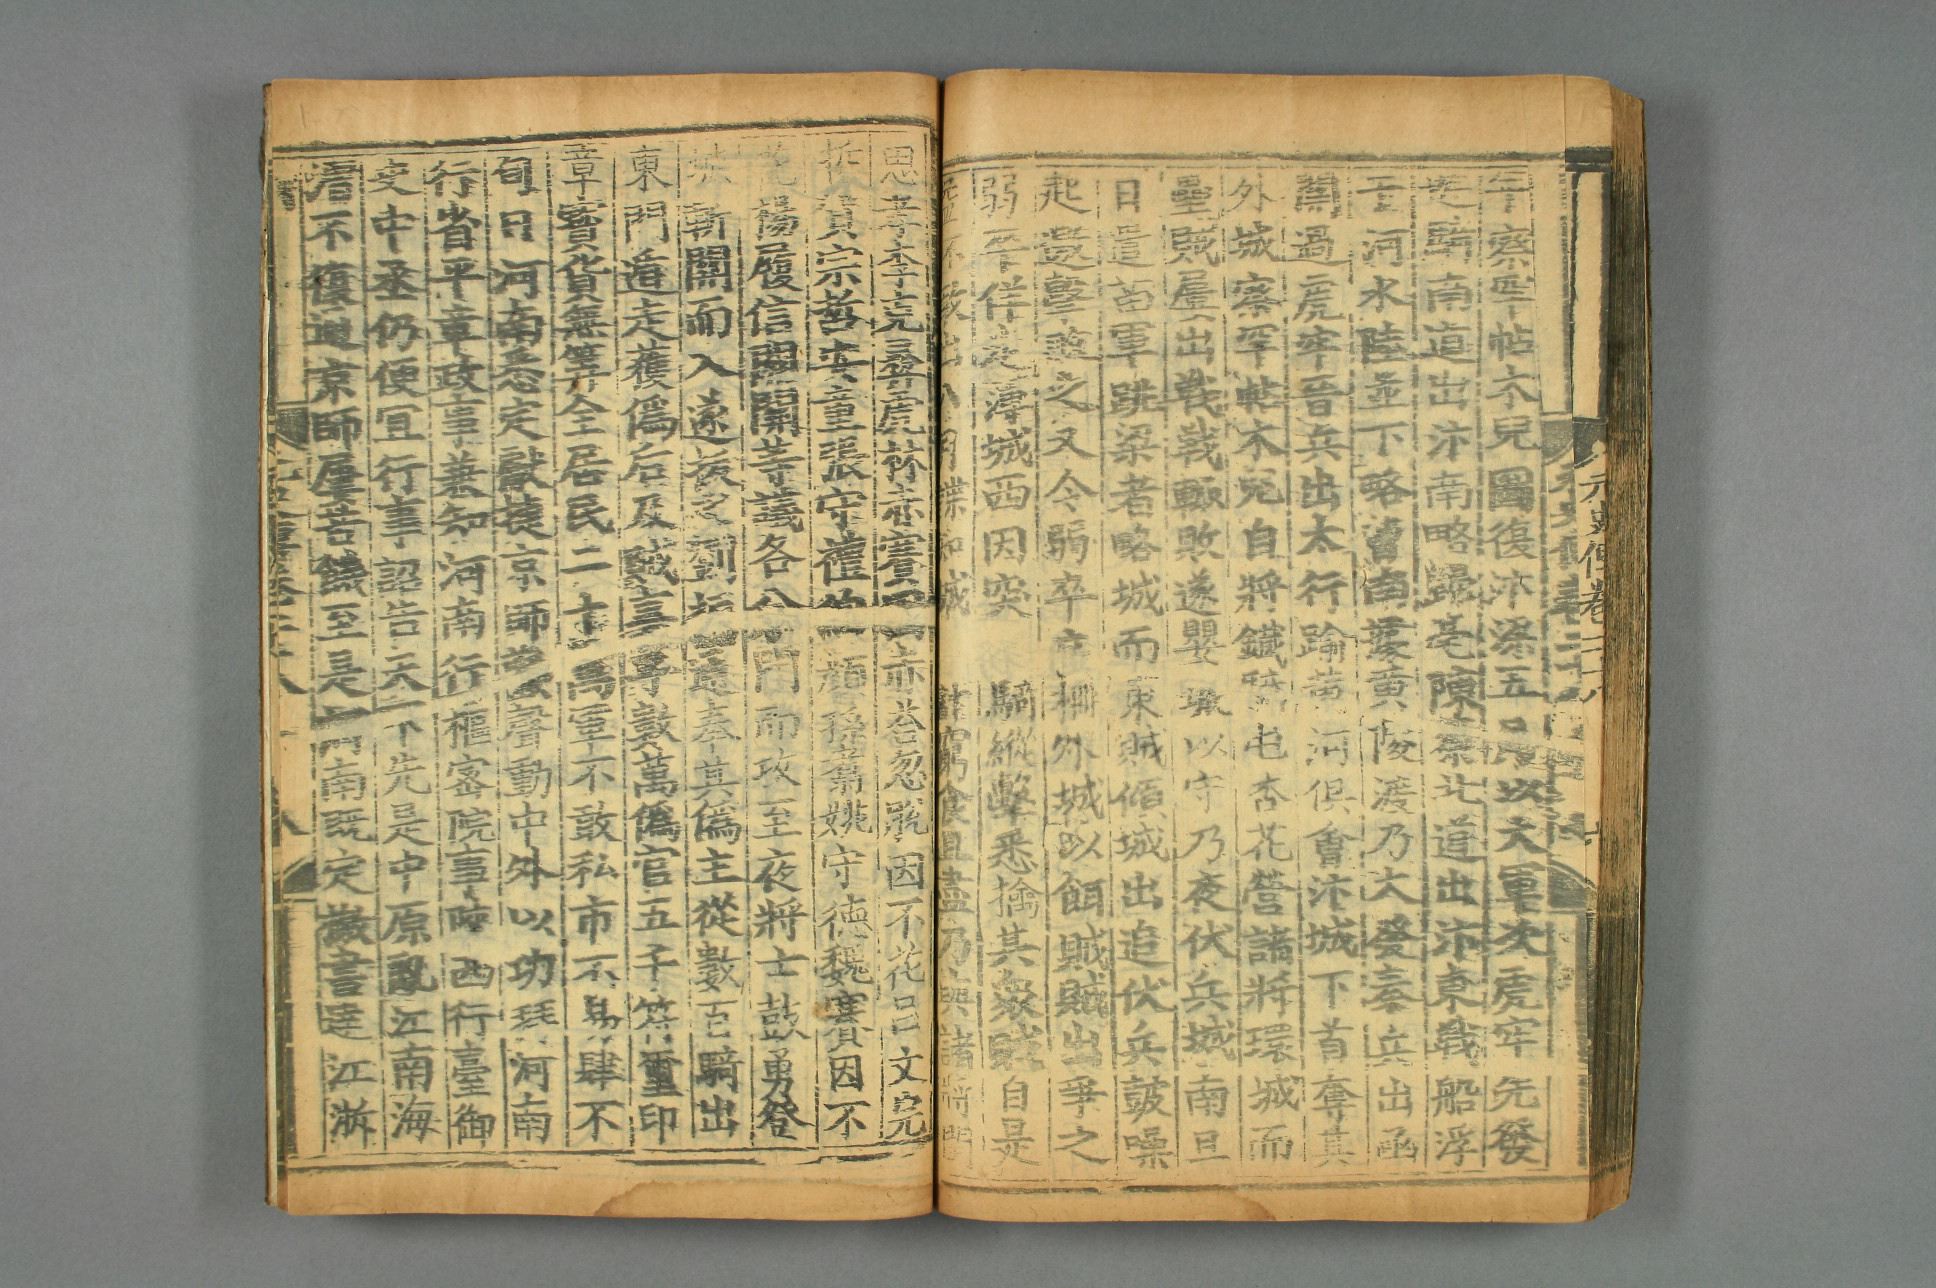 元史傳卷二十八
年察罕帖木兒圖復汴梁五月以大軍次虎牢先發
遊騎南道出汴南略歸亳陳蔡北道出汴東戰船浮
于河水陸並下略曹南據黃陵渡乃大發秦兵出函
關過虎牢晉兵出太行踰黃河俱會汴城下首奪其
外城察罕帖木兒自將鐵騎屯杏花營諸將環城而
壘賊屢出戰戰輒敗遂嬰城以守乃夜伏兵城南旦
日遣苗軍跳梁者略城而東賊傾城出追伏兵鼓噪
起邀擊敗之又令弱卒立柵外城以餌賊賊出爭之
弱卒佯走薄城西因突騎縱擊悉擒其衆賊自是
益不敢出八月諜知城計窮食且盡乃與諸將閻
思孝李克彝虎林赤賽因赤答忽脫因不花呂文完
哲賀宗哲安童張守禮伯顏孫翥姚守德魏賽因不
花楊履信關關等議各分門而攻至夜將士鼓勇登
城斬關而入遂拔之劉福通奉其偽主從數百騎出
東門遁走獲偽后及賊妻子數萬偽官五千符璽印
章寶貨無筭全居民二十萬軍不敢私市不易肆不
旬日河南悉定獻捷京師歡聲動中外以功拜河南
行省平章政事兼知河南行樞密院事陝西行臺御
史中丞仍便宜行事詔告天下先是中原亂江南海
漕不復通京師屢苦饑至是河南既定檄書達江浙